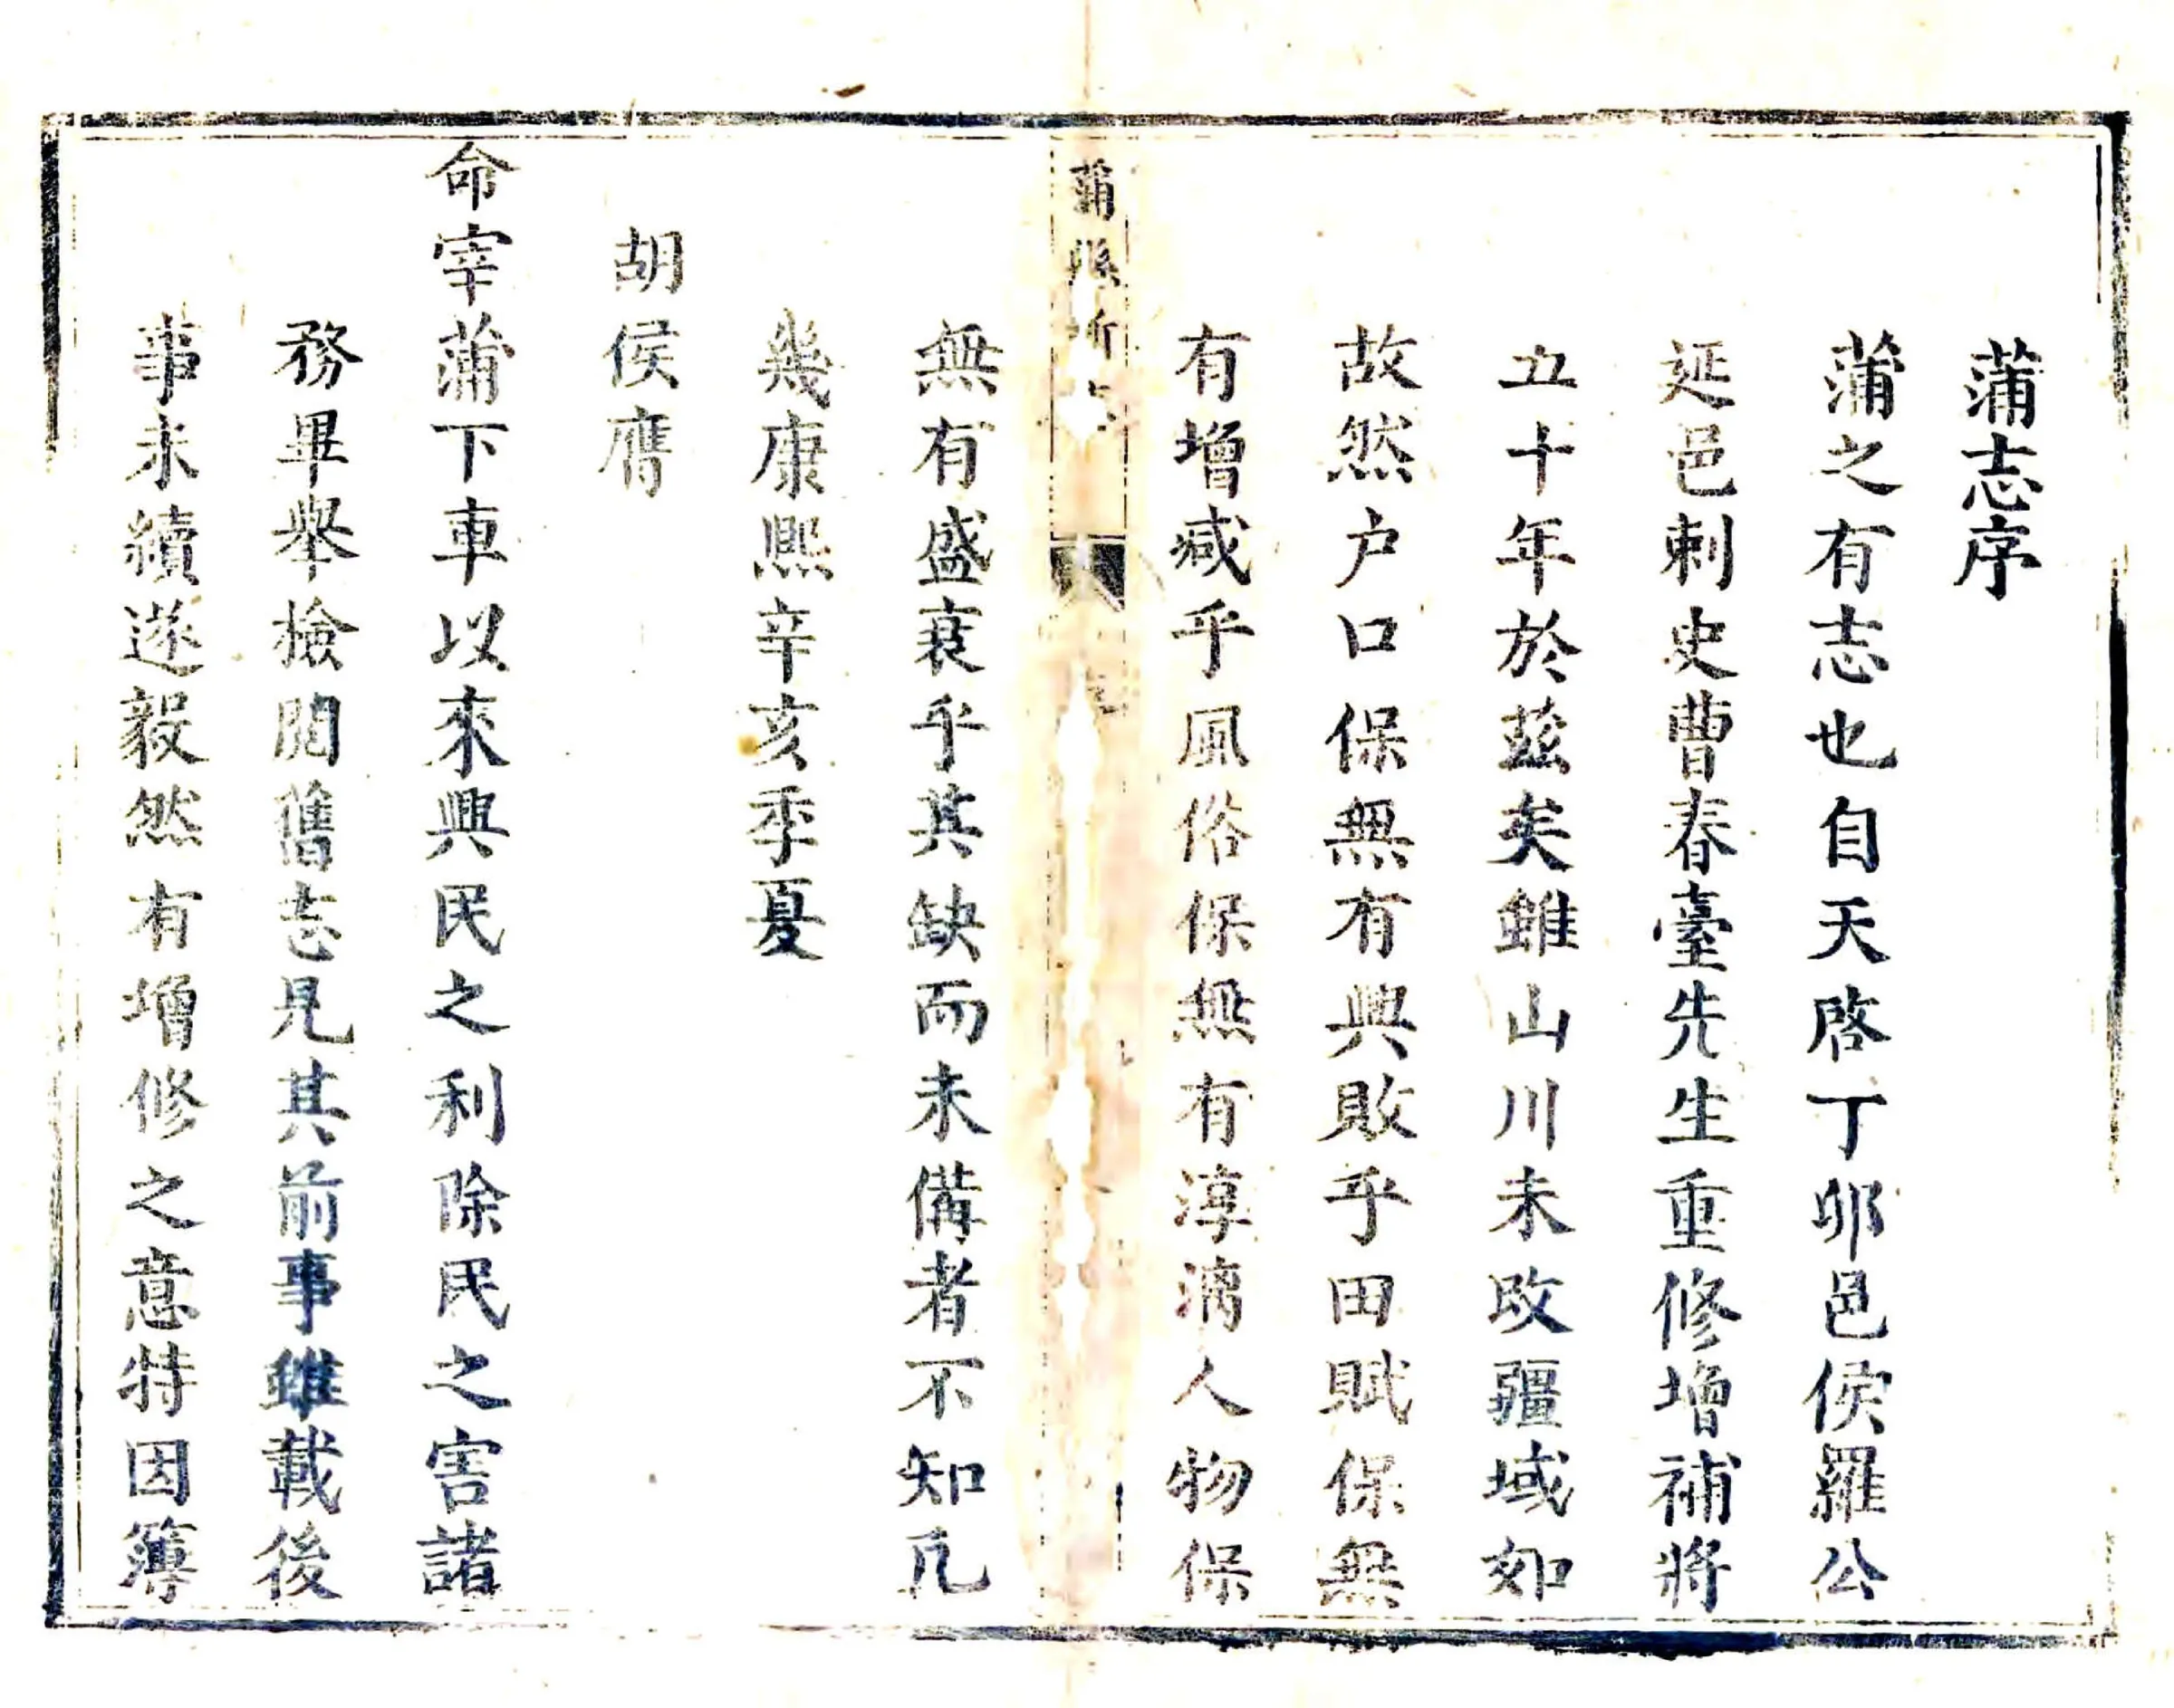 蒲志序
蒲之有志也自天啓丁卯邑侯羅公
延邑刺史曹春臺先生重修增補將
五十年於兹矣雖山川未改疆域如
故然户口保無有興敗乎田賦保無
有增减乎風俗保無有淳漓人物保
蒲縣
無有盛衰乎其缺而未備者不知凡
幾康熙辛亥季夏
胡侯膺
命宰蒲下車以來興民之利除民之害諸
務畢舉檢閲舊志見其前事雖載後
事未續遂毅然有增修之意特因簿